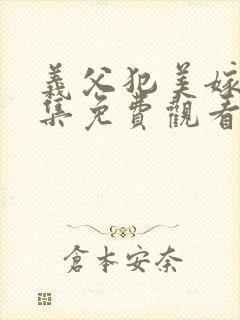 義父犯美嫁
集免費觀看
倉本安奈